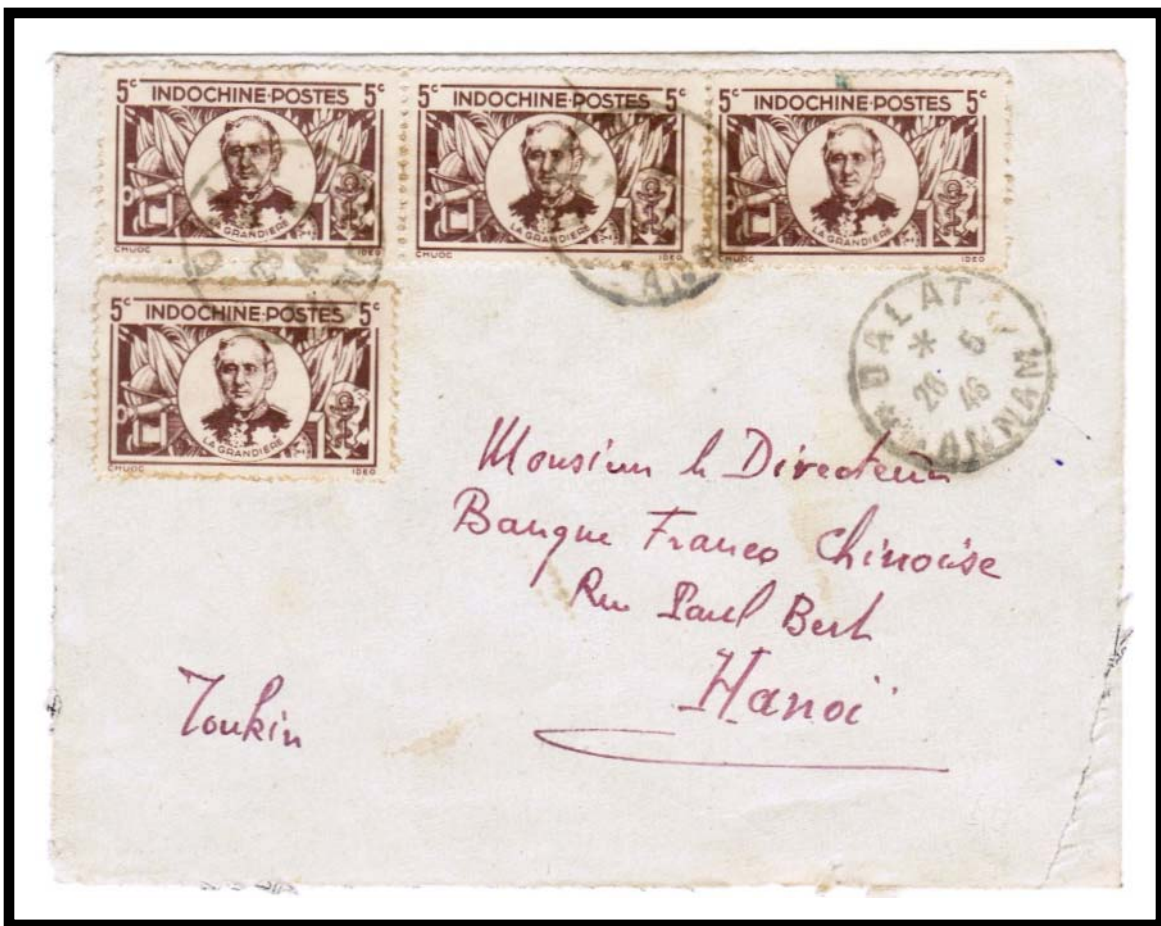 5c INDOCHINE-POSTES 5c
LA GRANDIERE
CHUOC IDEO
5c INDOCHINE-POSTES 5c
LA GRANDIERE
CHUOC IDEO
5c INDOCHINE-POSTES 5c
LA GRANDIERE
CHUOC IDEO
5c INDOCHINE-POSTES 5c
LA GRANDIERE
CHUOC IDEO
DALAT
* 6
26 46
ANNAM
Monsieur le Directeur
Banque Franco Chinoise
Rue Paul Bert
Hanoï
Tonkin